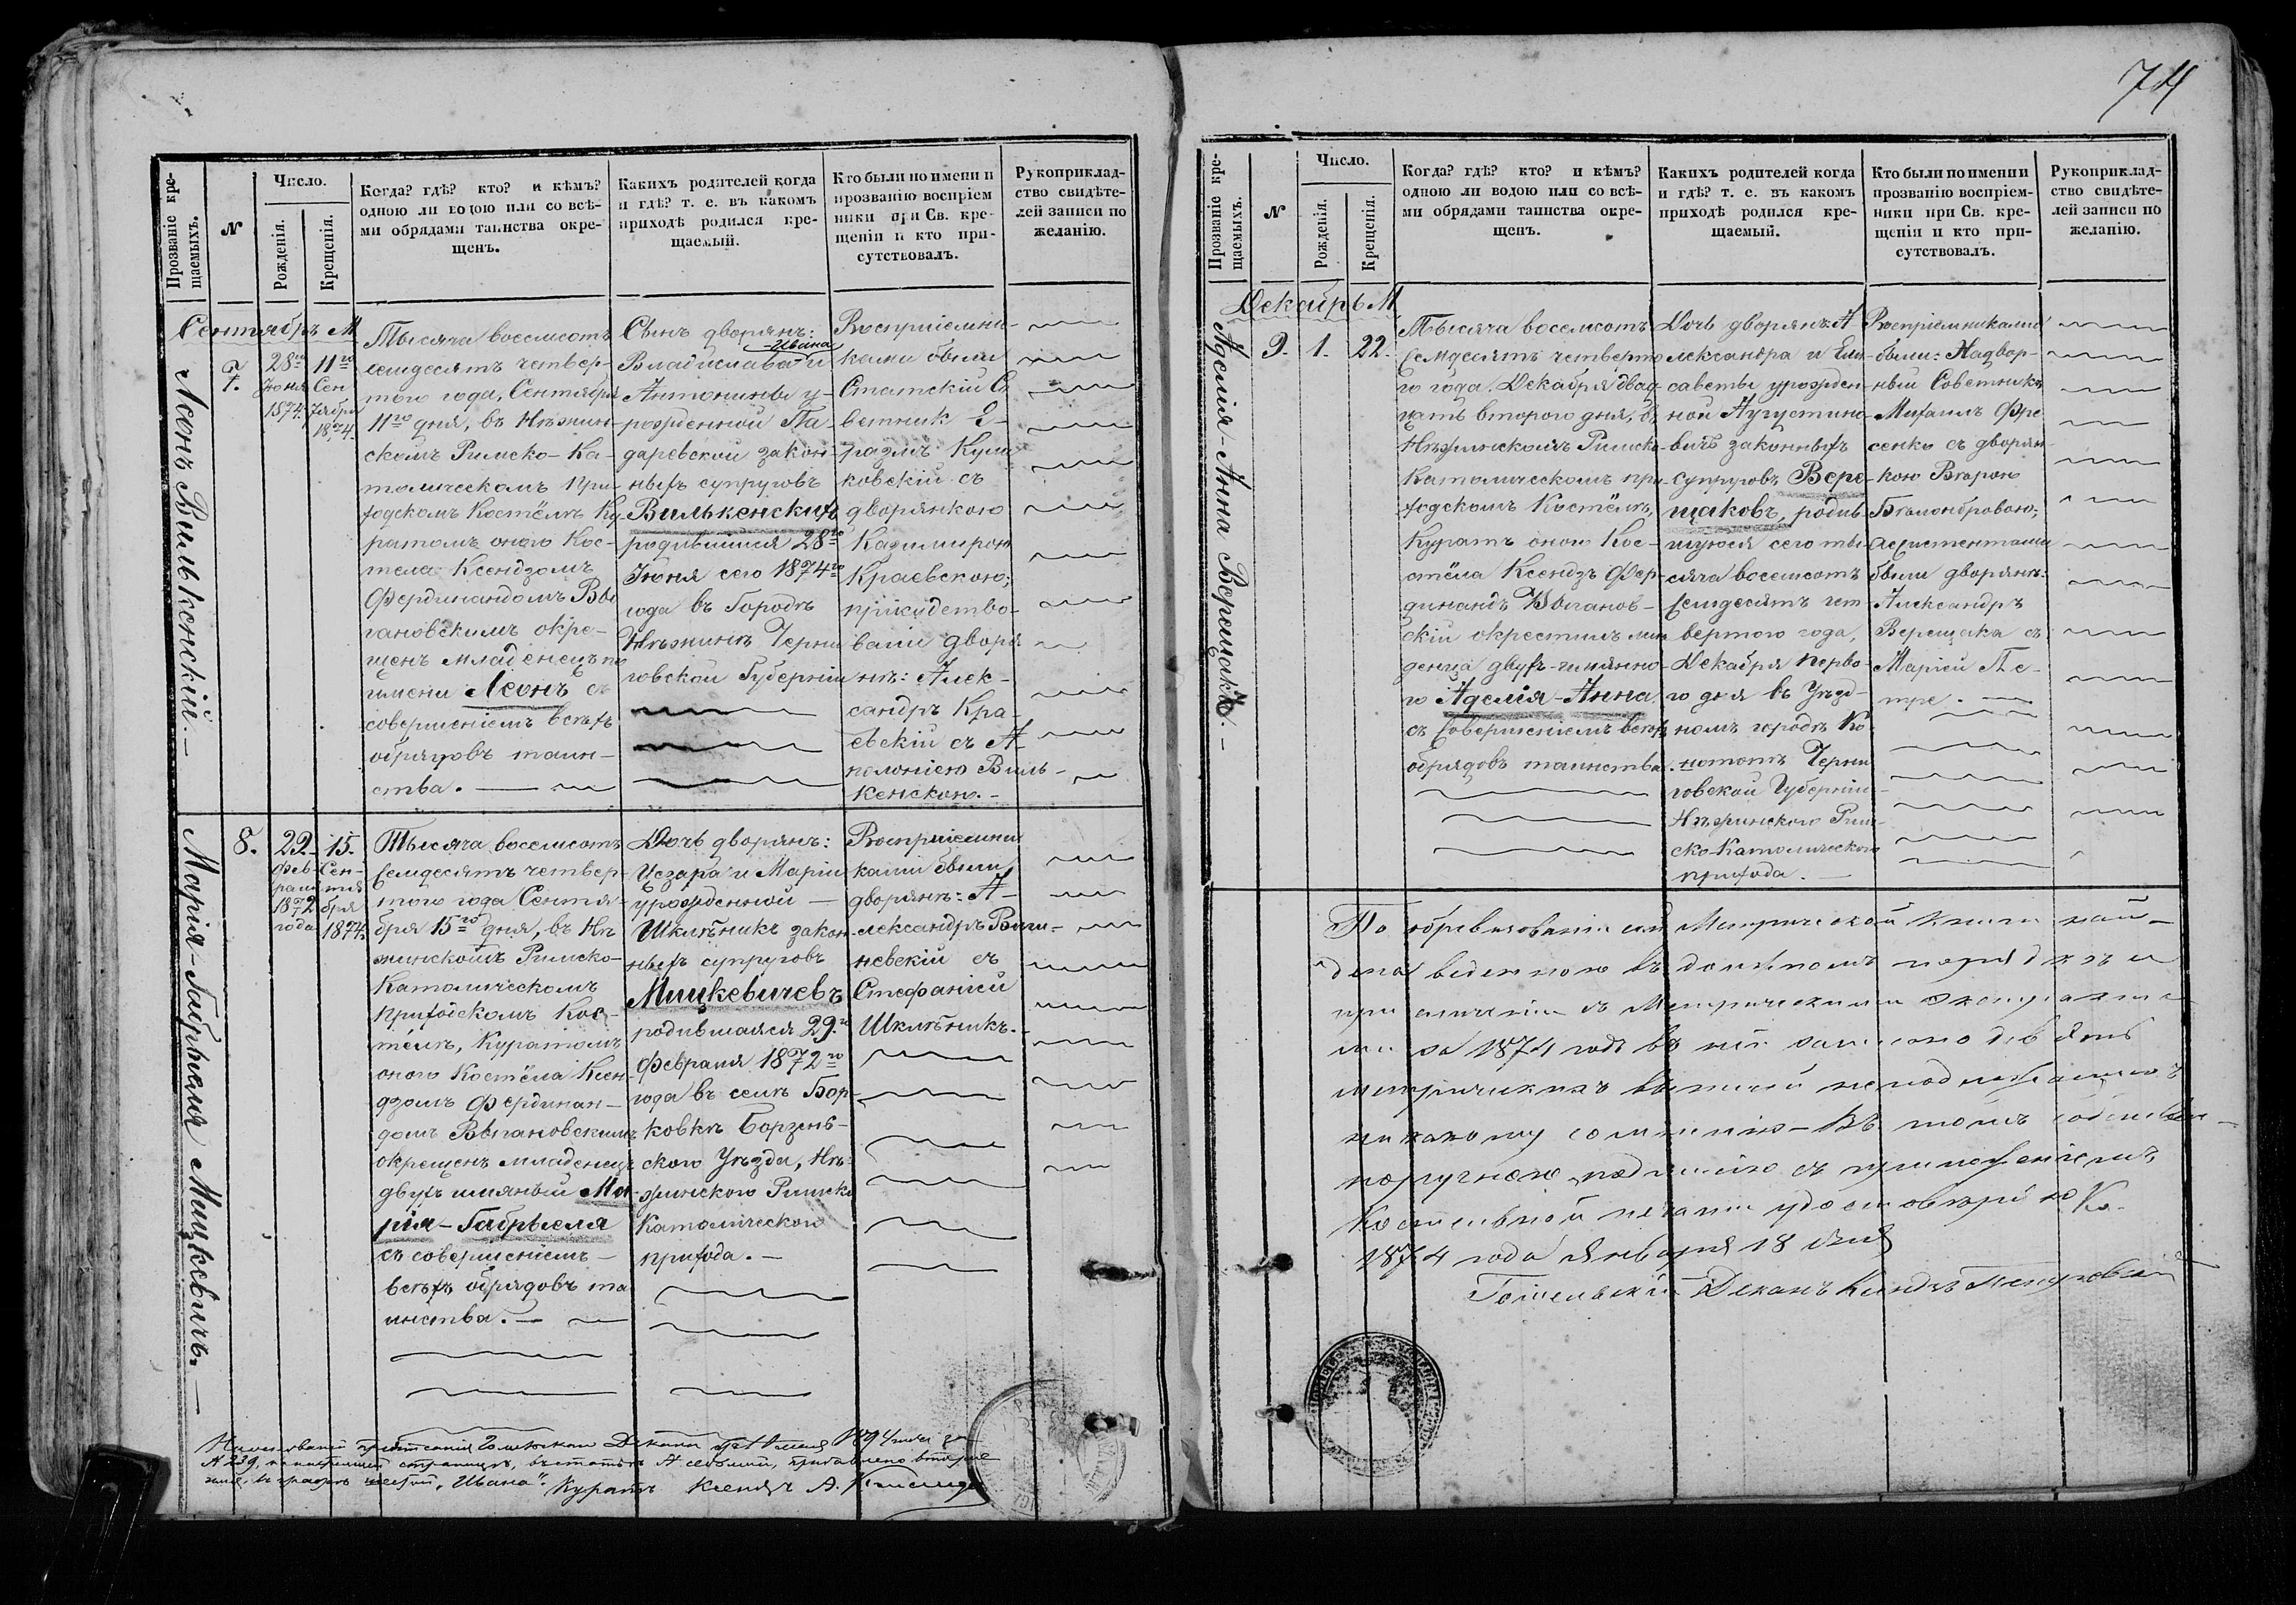 74
Прозваніе кре-
щаемыхъ.
N
Число.
Рожденія.
Крещенія.
Когда? гдѣ? кто? и кѣмъ?
одною ли водою или со всѣ-
ми обрядами таинства окре-
щенъ.
Какихъ родителей когда
и гдѣ? т. е. въ какомъ
приходѣ родился кре-
щаемый.
Кто были по имени и
прозванію воспріем
ники при Св. кре-
щеніи и кто при-
сутствовалъ.
Рукоприклад-
ство свидѣте-
лей записи по
желанію.
Сентябрь М
Леонъ Вилькенскій.-
7.
28го
Іюня
1874.
11го
Сен
тября
1874.
Тысяча восемсотъ
семдесятъ четвер-
того года, Сентября
11го дня, въ Нѣжин-
скомъ Римско-Ка-
толическомъ При-
ходскомъ Костёлѣ Ку-
ратомъ оного Кос-
тела Ксендзомъ
Фердинандомъ Вы
гановскимъ окре-
щенъ младенецъ по
имени Леонъ съ
совершеніемъ всѣхъ
обрядовъ таин-
ства.
Сынъ дворянъ:
-Ивана
Владислава и
Антонины у-
рожденной Па-
даревской закон-
ныхъ супруговъ
Вилькенскихъ
родившийся 28го
Іюня сего 1874го
года въ Городѣ
Нѣжинѣ Черни
говской Губерніи
Воспріемни-
ками были
Статскій Со
ветник Е-
размъ Кули
ковскій съ
дворянкою
Казимирою
Краевскою;
присудство-
вали дворя-
нѣ: Алек-
сандръ Кра-
евскій съ А-
полоніею Виль-
кенскою.-
Марія-Габрыеля Мицкевичъ.-
8.
22-
Фев-
раля
1872
года
15.
Сен-
тя
бря
1874.
Тысяча восемсотъ
Семдесятъ четвер-
того года Сентя-
бря 15го дня, въ Нѣ
жинскомъ Римско-
Католическомъ
Приходскомъ Кос-
тёлѣ, Куратомъ
оного Костёла Ксен-
дзомъ Фердинан-
домъ Выгановскимъ
окрещенъ младенецъ
двухъ имянный Ма-
рія-Габрыеля
съ совершеніемъ-
всѣхъ обрядовъ та
инства.
Дочь дворянъ:
Цезара и Маріи
урожденной -
Шкилѣникъ закон-
ныхъ супруговъ
Мицкевичевъ
родившаяся 29.го
Февраля 1872го
года въ селѣ Бор-
ковкѣ Борзень-
ского Уѣзда, Нѣ-
жинского Римско
Католического
прихода.-
Воспріемни
ками были
дворянѣ: А-
лександръ
невскій съ
Стефаніей
Шкилѣникъ.-
N 239, страницѣ,
"Ивана". Куратъ Ксендзъ А.
Прозваніе кре-
щаемыхъ.
N
Число.
Рожденія.
Крещенія.
Когда? гдѣ? кто? и кѣмъ?
одною ли водою или со всѣ-
ми обрядами таинства окре-
щенъ.
Какихъ родителей когда
и гдѣ? т. е. въ какомъ
приходѣ родился кре-
щаемый.
Кто были по имени и
прозванію воспріем-
ники при Св. кре-
щеніи и кто при-
сутствовалъ.
Рукоприклад-
ство свидѣте-
лей записи по
желанію.
Декабрь М
Аделія-Анна
9.
1.
22.
Тысяча восемсотъ
Семдесятъ четверто
го года. Декабря двад-
цать второго дня, въ
Нѣжинскомъ Римско-
Католическомъ при-
ходскомъ Костёлѣ,
Куратъ оного Кос-
стёла Ксендзъ Фер-
динандъ Выганов-
скій окрестилъ мла
денца двухъ-имянно-
го Аделія-Анна
съ Совершеніемъ всѣхъ
обрядовъ таинства.
Дочь дворянъ: А-
лександра и Ели-
саветы урожден-
ной Аугустино-
вичъ законныхъ
супруговъ Вере-
щаковъ, родив-
шуюся сего ты-
сяча восемсотъ
Семдесятъ чет
вертого года,
Декабря перво-
го дня въ Уѣзд-
номъ городѣ Ко
нотопѣ Черни
говской Губерніи
Нѣжинского Рим-
ско-Католического
прихода.-
Воспріемниками
были: Надвор-
ный Советникъ
Михаилъ Фре
сенко съ дворян-
кою Вѣрою
ассистентами
были дворянѣ:
Александръ
Верещака съ
Маріей Пе-
тре.-
По обревизованіи сей Метрической книги най-
дена веденною въ должномъ порядкѣ и
при сличеніи съ Метрическими Экстракта-
ми за 1874 годъ въ ней записано девять
метрическихъ
никакому сомнѣнію- Въ томъ собствен-
норучною подписью съ приложеніемъ
Костельной печати удостовѣряю
1874 года Января 18 дня
Гомельскій Деканъ Ксендзъ